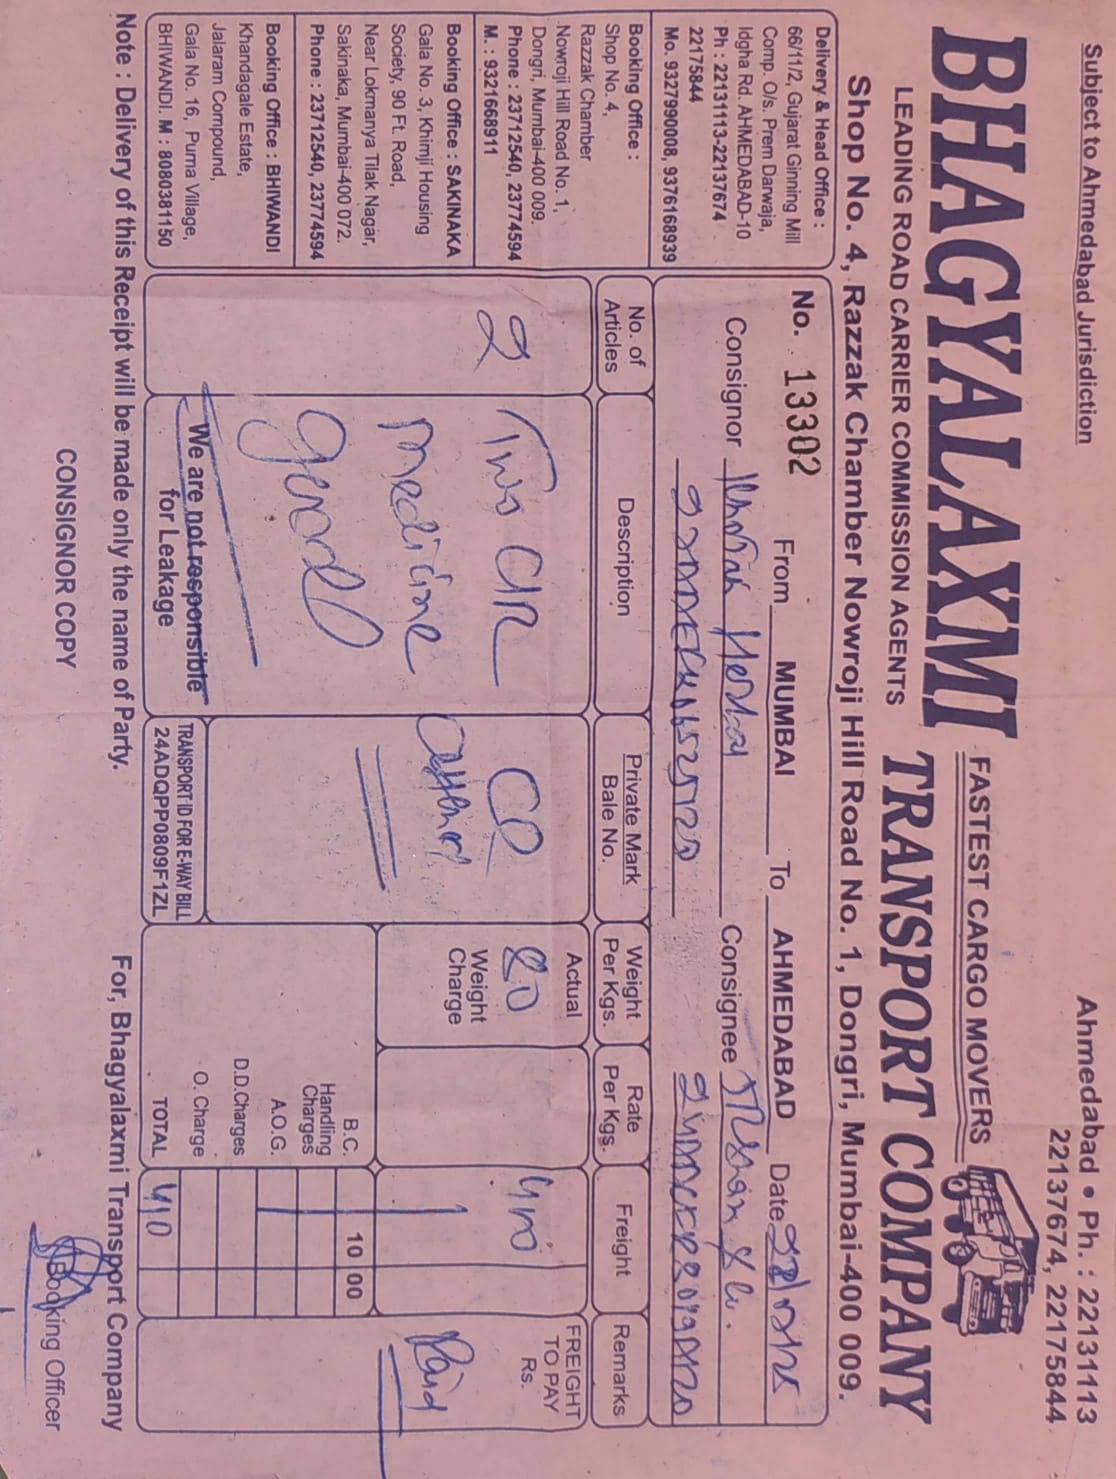 Subject to Ahmedabad Jurisdiction
Ahmedabad • Ph. : 22131113
22137674, 22175844
BHAGYALAXMI
FASTEST CARGO MOVERS
TRANSPORT COMPANY
LEADING ROAD CARRIER COMMISSION AGENTS
Shop No. 4, Razzak Chamber Nowroji Hill Road No. 1, Dongri, Mumbai-400 009.
Delivery & Head Office :
66/11/2, Gujarat Ginning Mill
Comp. O/s. Prem Darwaja,
Idgha Rd. AHMEDABAD-10
Ph : 22131113-22137674
22175844
Mo. 9327990008, 9376168939
Booking Office :
Shop No. 4,
Razzak Chamber
Nowroji Hill Road No. 1,
Dongri, Mumbai-400 009.
Phone : 23712540, 23774594
M. : 9321668911
Booking Office : SAKINAKA
Gala No. 3, Khimji Housing
Society, 90 Ft. Road,
Near Lokmanya Tilak Nagar,
Sakinaka, Mumbai-400 072.
Phone : 23712540, 23774594
Booking Office : BHIWANDI
Khandagale Estate,
Jalaram Compound,
Gala No. 16, Purna Village,
BHIWANDI. M : 8080381150
No. 13302 From MUMBAI To AHMEDABAD Date
Consignor
Consignee
No. of Articles
Description
Private Mark Bale No.
Weight Per Kgs.
Rate Per Kgs.
Freight
Remarks
2
Two
Medicine
Actual
80
Weight Charge
FREIGHT TO PAY Rs.
Paid
B.C. 10 00
Handling Charges
A.O.G.
D.D.Charges
O. Charge
TOTAL
We are not responsible
for Leakage
TRANSPORT ID FOR E-WAY BILL
24ADQPP0809F1ZL
Note : Delivery of this Receipt will be made only the name of Party.
For, Bhagyalaxmi Transport Company
CONSIGNOR COPY
Booking Officer